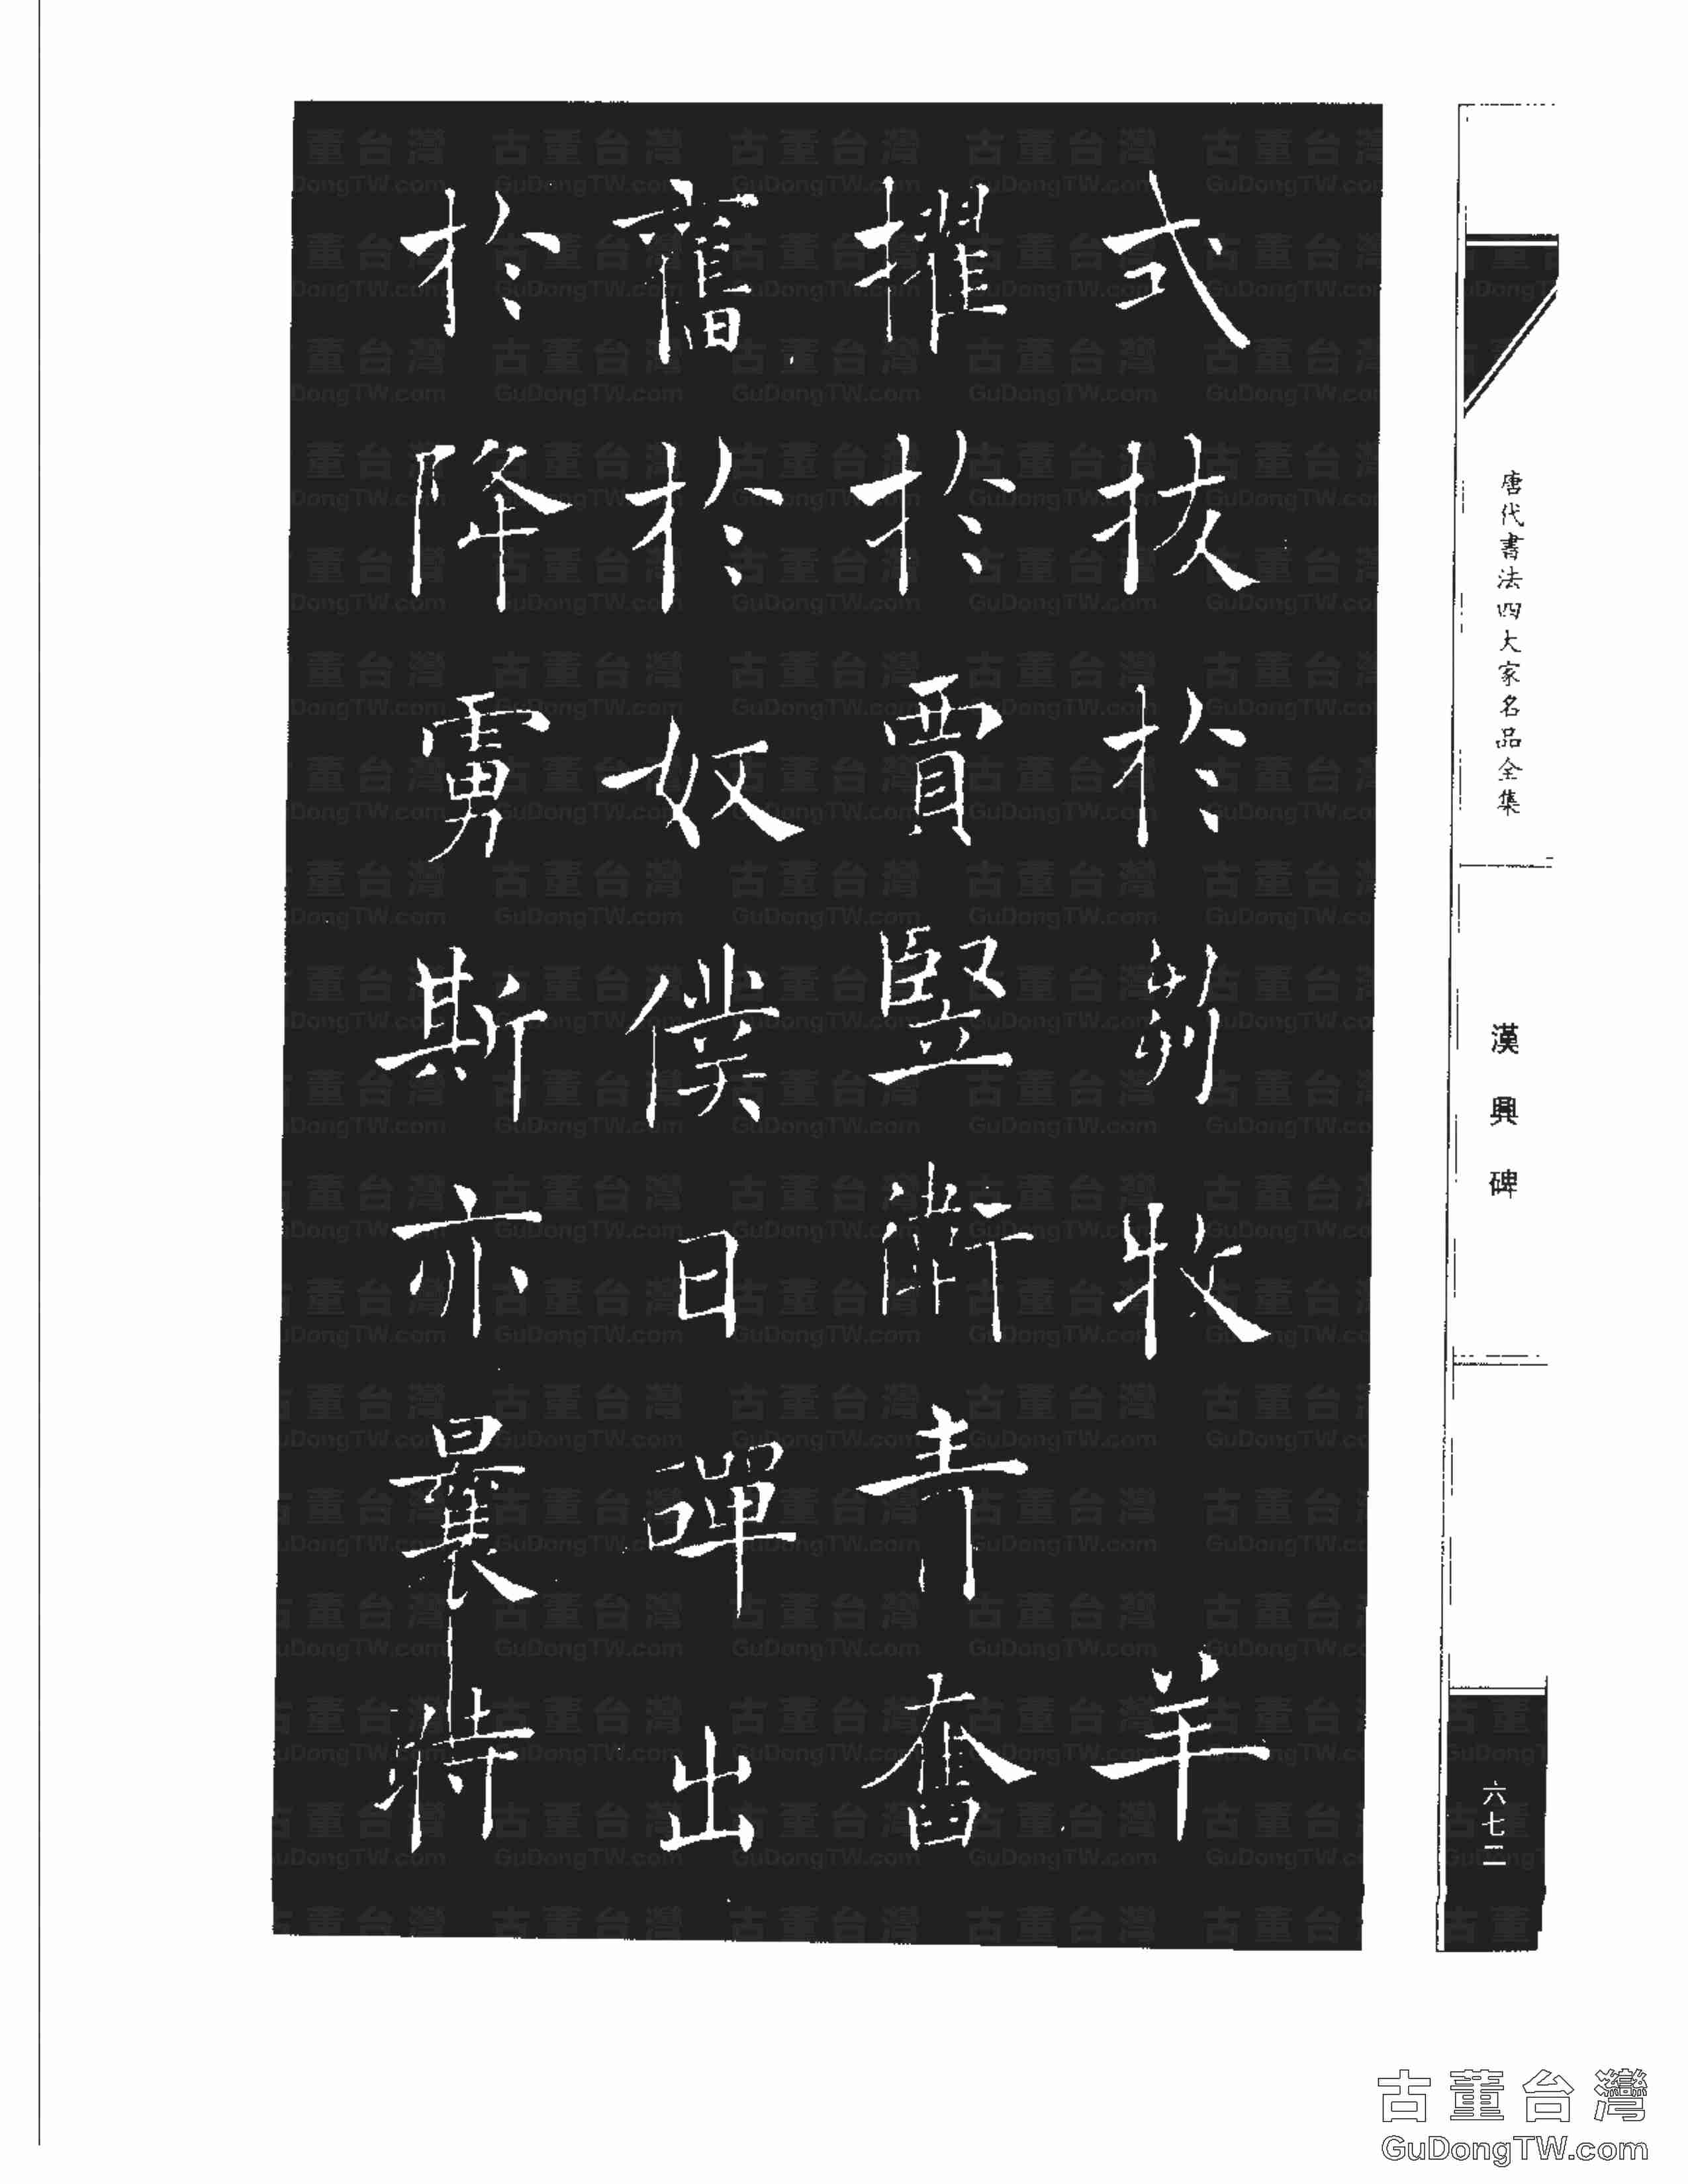 式拔於芻牧羊
擢於賈豎衛青奮
舊於奴僕日磾出
於降虜斯亦曩時
唐代書法四大家名品全集
漢興碑
六七二
古董台灣
GuDongTW.com